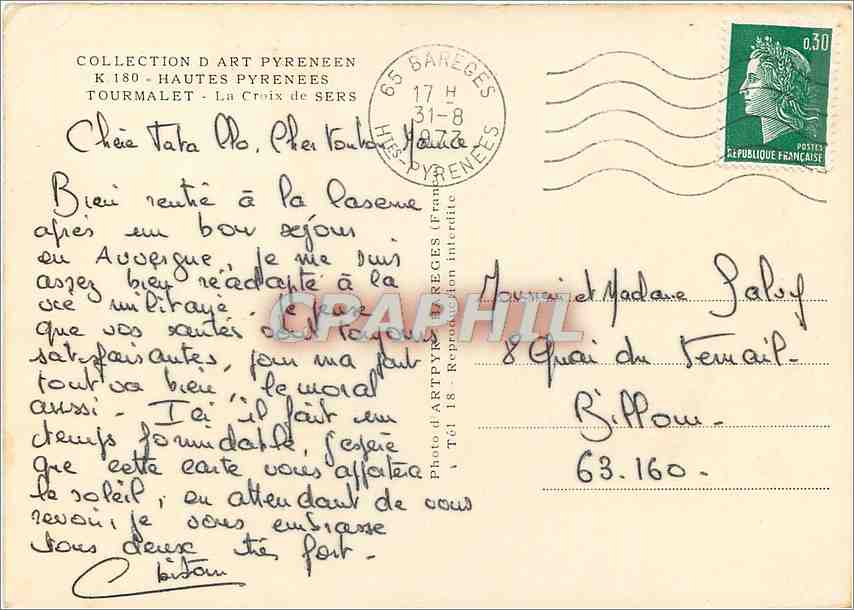 COLLECTION D ART PYRENEEN
K 180 - HAUTES PYRENEES
TOURMALET - La Croix de SERS
65 BAREGES
17 H
31-8
1973
Htes PYRENEES
0,30
POSTES
REPUBLIQUE FRANÇAISE
Chère Tata Clo, Cher Tonton Maurice.
Bien rentré à la Caserne
après un bon séjour
en Auvergne, je me suis
assez bien réadapté à la
vie militaire. Je pense
que vos santés sont toujours
satisfaisantes, pour ma part
tout va bien, le moral
aussi. Ici il fait un
temps formidable, j'espère
que cette carte vous apportera
le soleil, en attendant de vous
revoir, je vous embrasse
tous deux très fort.
Photo d'ARTPYR BAREGES (France)
Tél 18 - Reproduction interdite
Monsieur et Madame Salvy
8 Quai du Terrail.
Billom.
63.160.
CPAPHIL